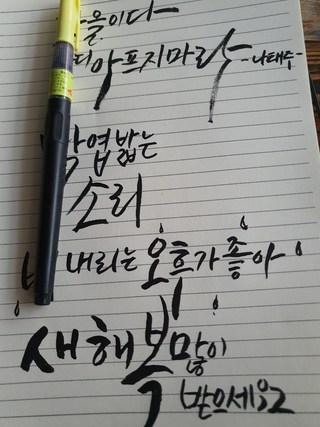 을이다
아프지마라 -나태주-
엽밟는
소리
내리는 오후가 좋아
새해 복 많이
받으세요